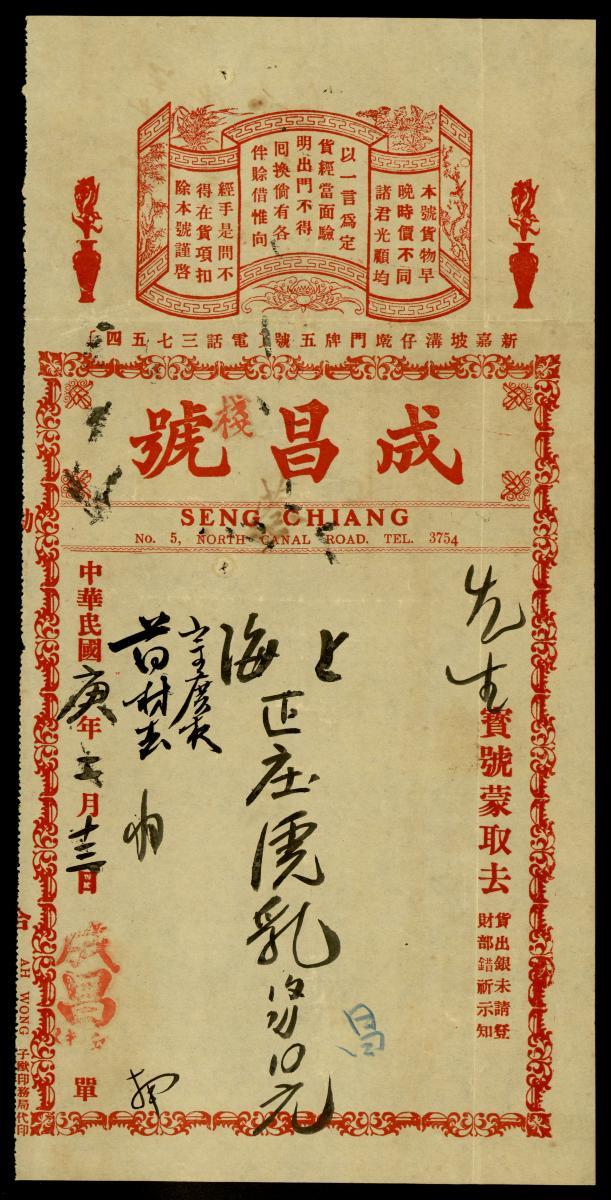 本號貨物早
晚時價不同
諸君光顧均
以一言為定
貨經當面驗
明出門不得
囘換倘有各
件賒借惟向
經手是問不
得在貨項扣
除本號謹啓
新嘉坡溝仔墘門牌五號 電話三七五四
成昌棧號
SENG CHIANG
No. 5, NORTH CANAL ROAD. TEL. 3754
先生寶號蒙取去
貨出銀未請登
財部錯祈示知
上海
正庄
乳
元
昌
中華民國庚年月十三日
成昌
單
AH WONG
印務局代印